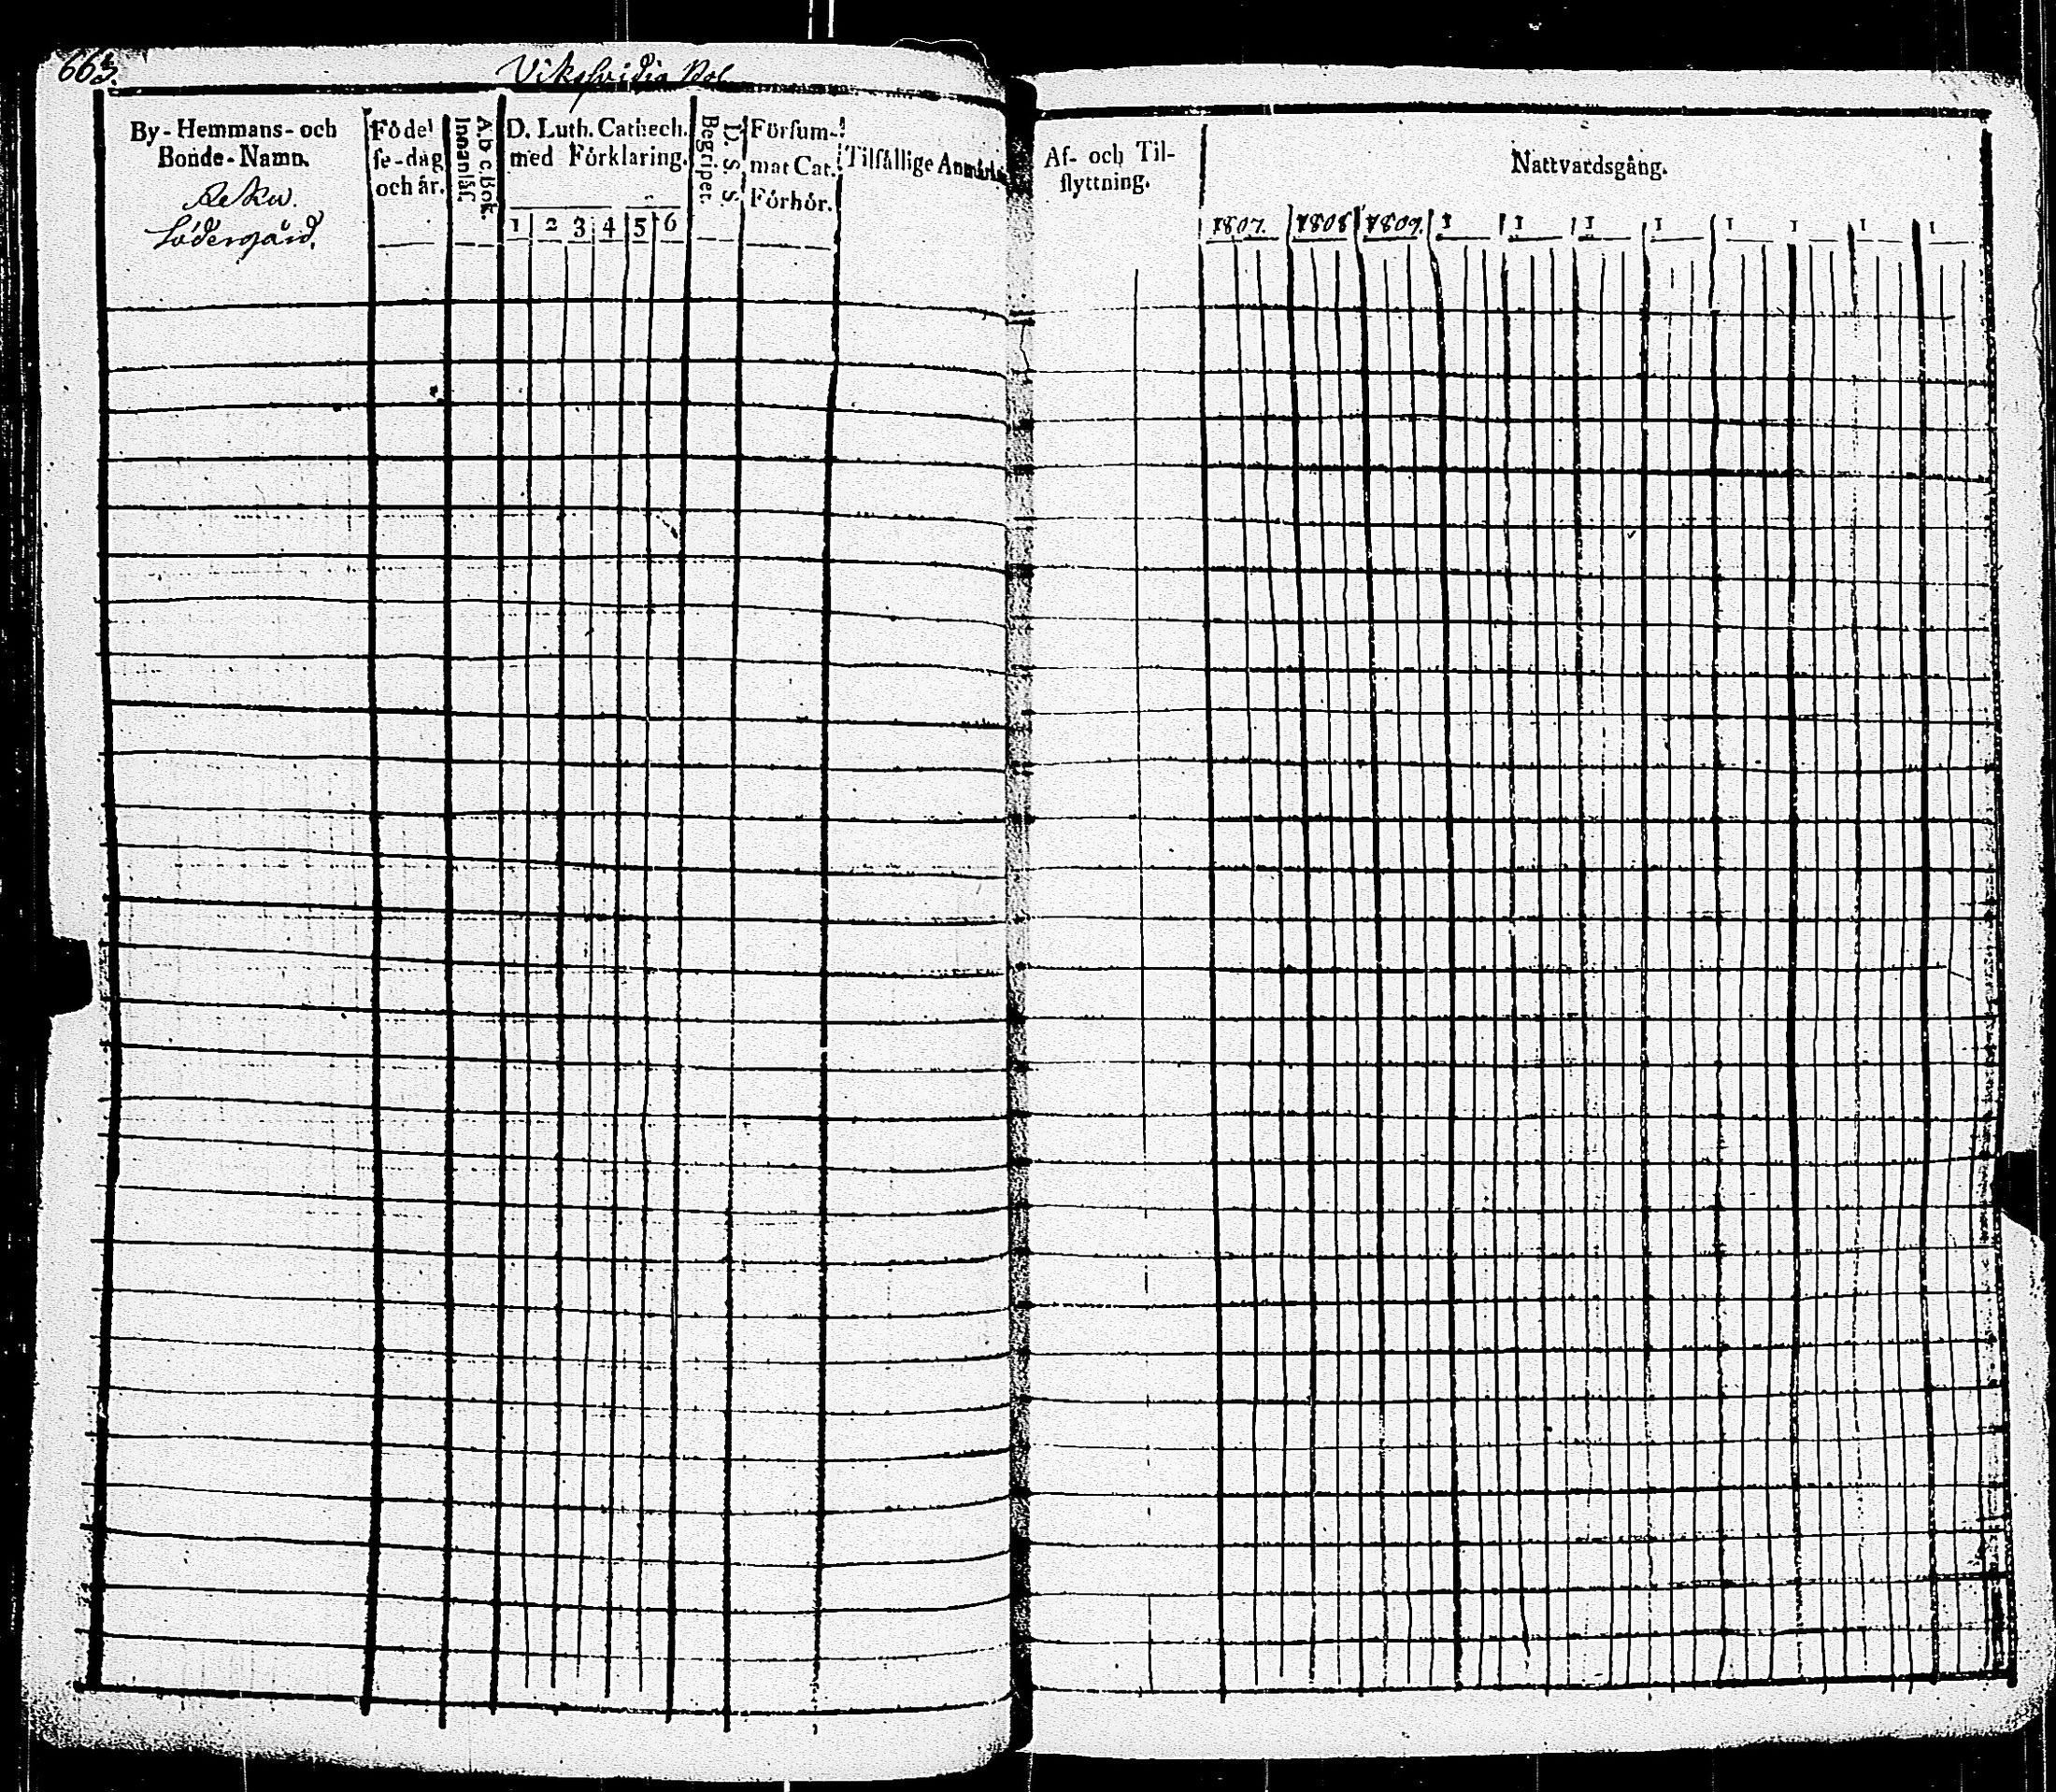 663.
By-Hemmans- och
Bonde-Namn.
Södergård.
Födel
se-dag
och år.
A.b c.Bok.
Innanläs.
D. Luth. Cathech.
med Förklaring.
1 2 3 4 5 6
Begriper.
D. S. S.
Försum-
mat Cat.
Förhör.
Tilfällige Anmärk
Af- och Til-
flyttning.
Nattvardsgång.
1807. 1808 1809. 1 1 1 1 1 1 1 1